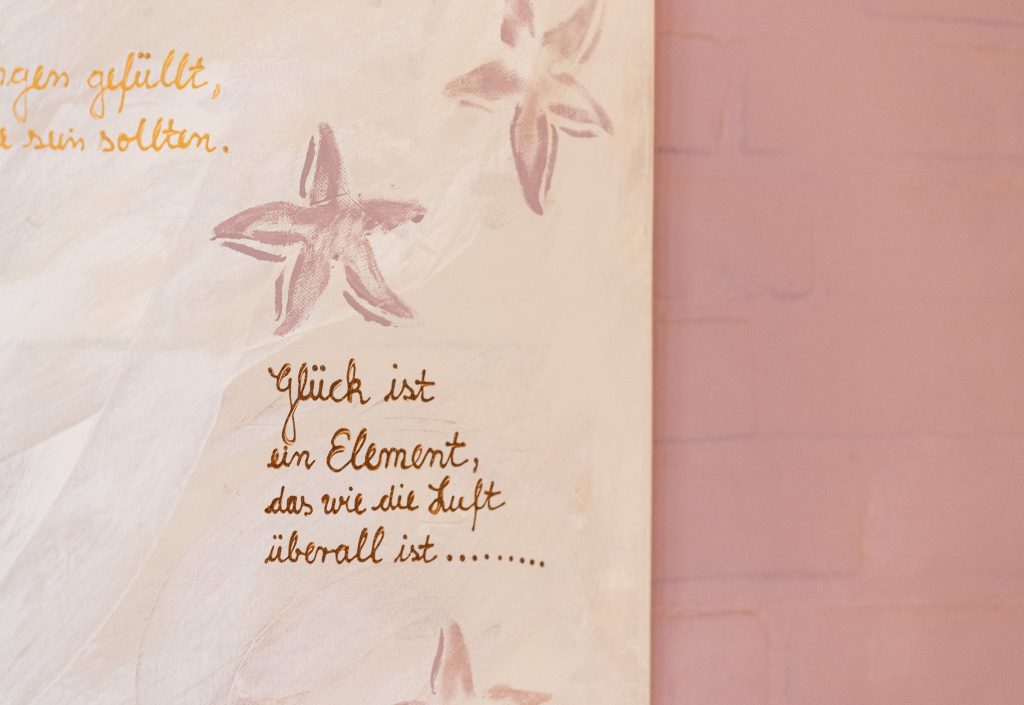 gefüllt,
sein sollten.
Glück ist
ein Element,
das wie die Luft
überall ist.........